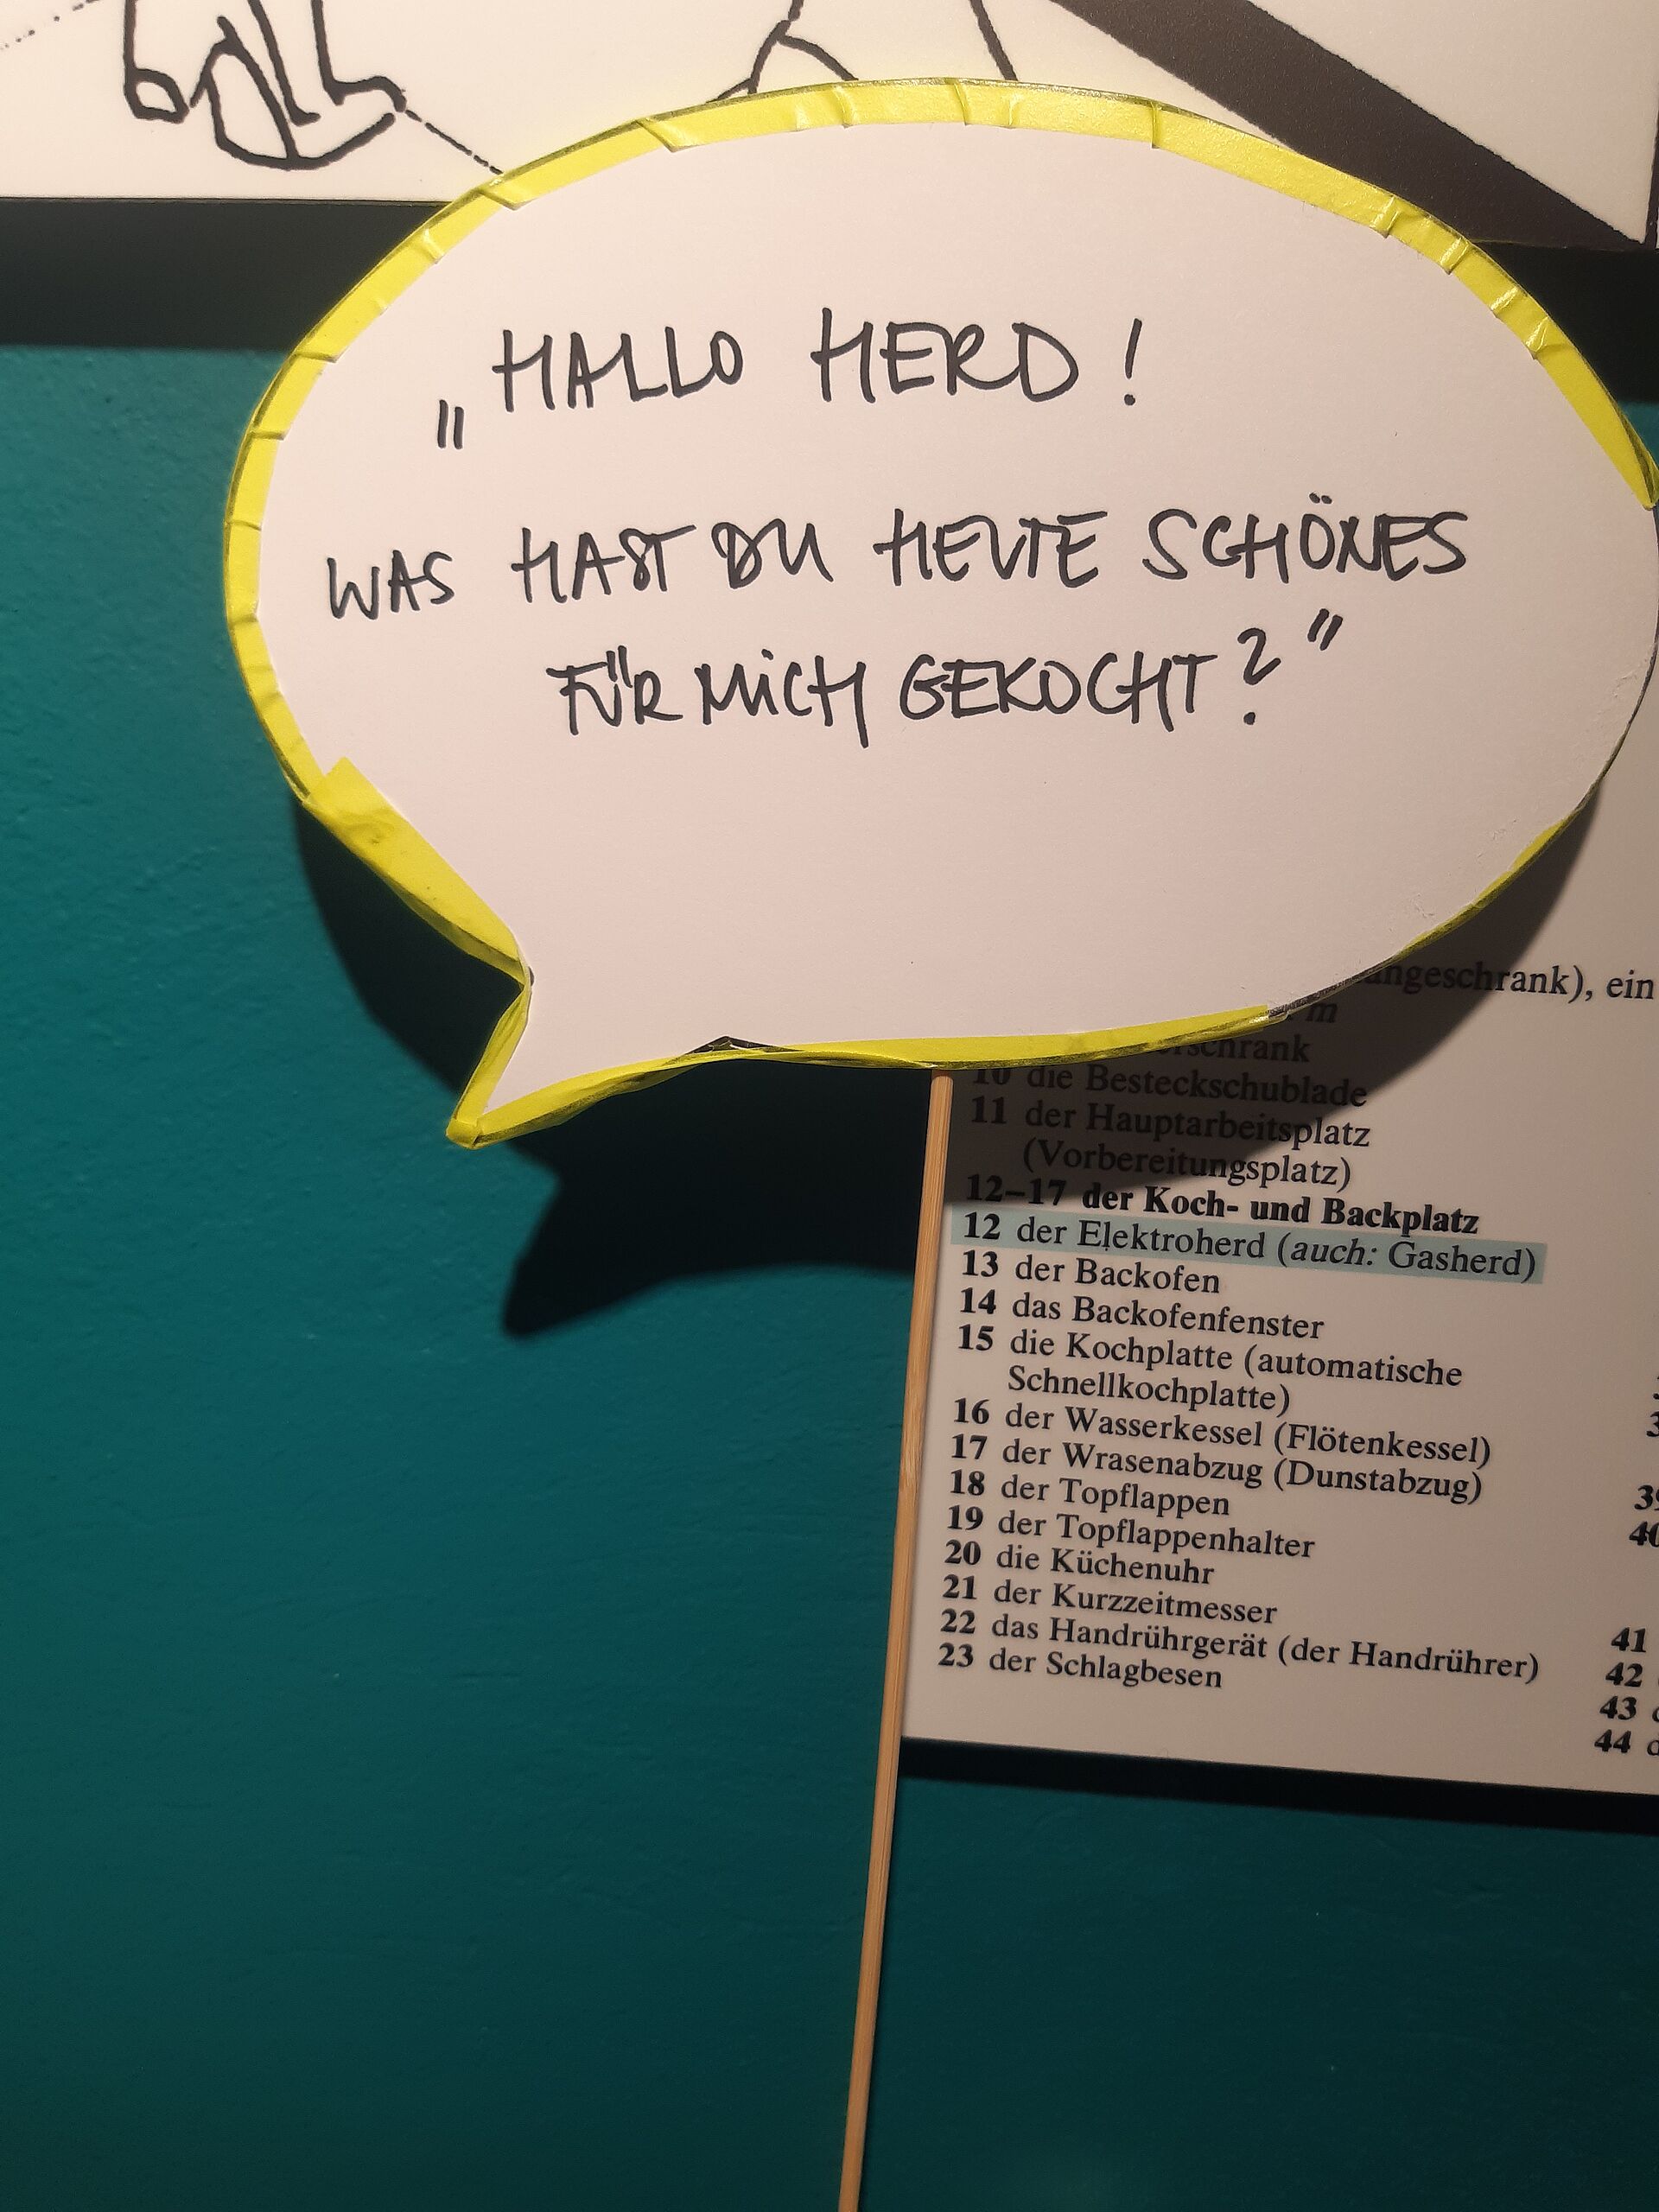 „HALLO HERD!
WAS HAST DU HEUTE SCHÖNES
FÜR MICH GEKOCHT?"
ein
m
10 die Besteckschublade
11 der Hauptarbeitsplatz
(Vorbereitungsplatz)
12–17 der Koch- und Backplatz
12 der Elektroherd (auch: Gasherd)
13 der Backofen
14 das Backofenfenster
15 die Kochplatte (automatische
Schnellkochplatte)
16 der Wasserkessel (Flötenkessel)
17 der Wrasenabzug (Dunstabzug)
18 der Topflappen
19 der Topflappenhalter
20 die Küchenuhr
21 der Kurzzeitmesser
22 das Handrührgerät (der Handrührer)
23 der Schlagbesen
39
40
41
42
43
44